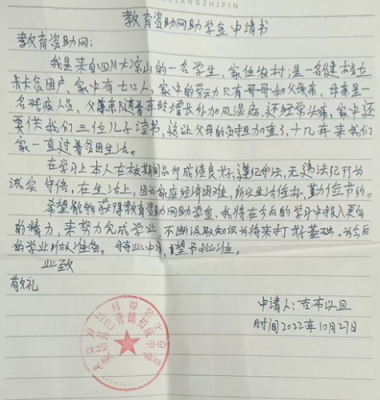 教育资助网助学金申请书
教育资助网：
我是来自四川大凉山的一名学生，家住农村；是一名建档立
卡贫困户，家中有七口人，家中的劳动力只有哥哥和父亲，母亲是一
名残疾人员，父亲年龄增长外加风湿病，还经常头痛，家中还
要供我们三位儿子读书，这让父母的负担加重了，十几年来我们
家一直过着贫困生活。
在学习上本人在校期间成绩良好，遵纪守法，无违法记行为
诚实守信，在生活上，因为家庭经济困难，所以生活俭朴，勤俭节约。
希望能够获得教育资助网助学金，我将在今后的学习中投入更多
的精力，来努力完成学业，不断汲取知识为将来打好基础，为今后
的学业做准备。特此申请，望予批准。
此致
敬礼
申请人：
时间2022年10月27日